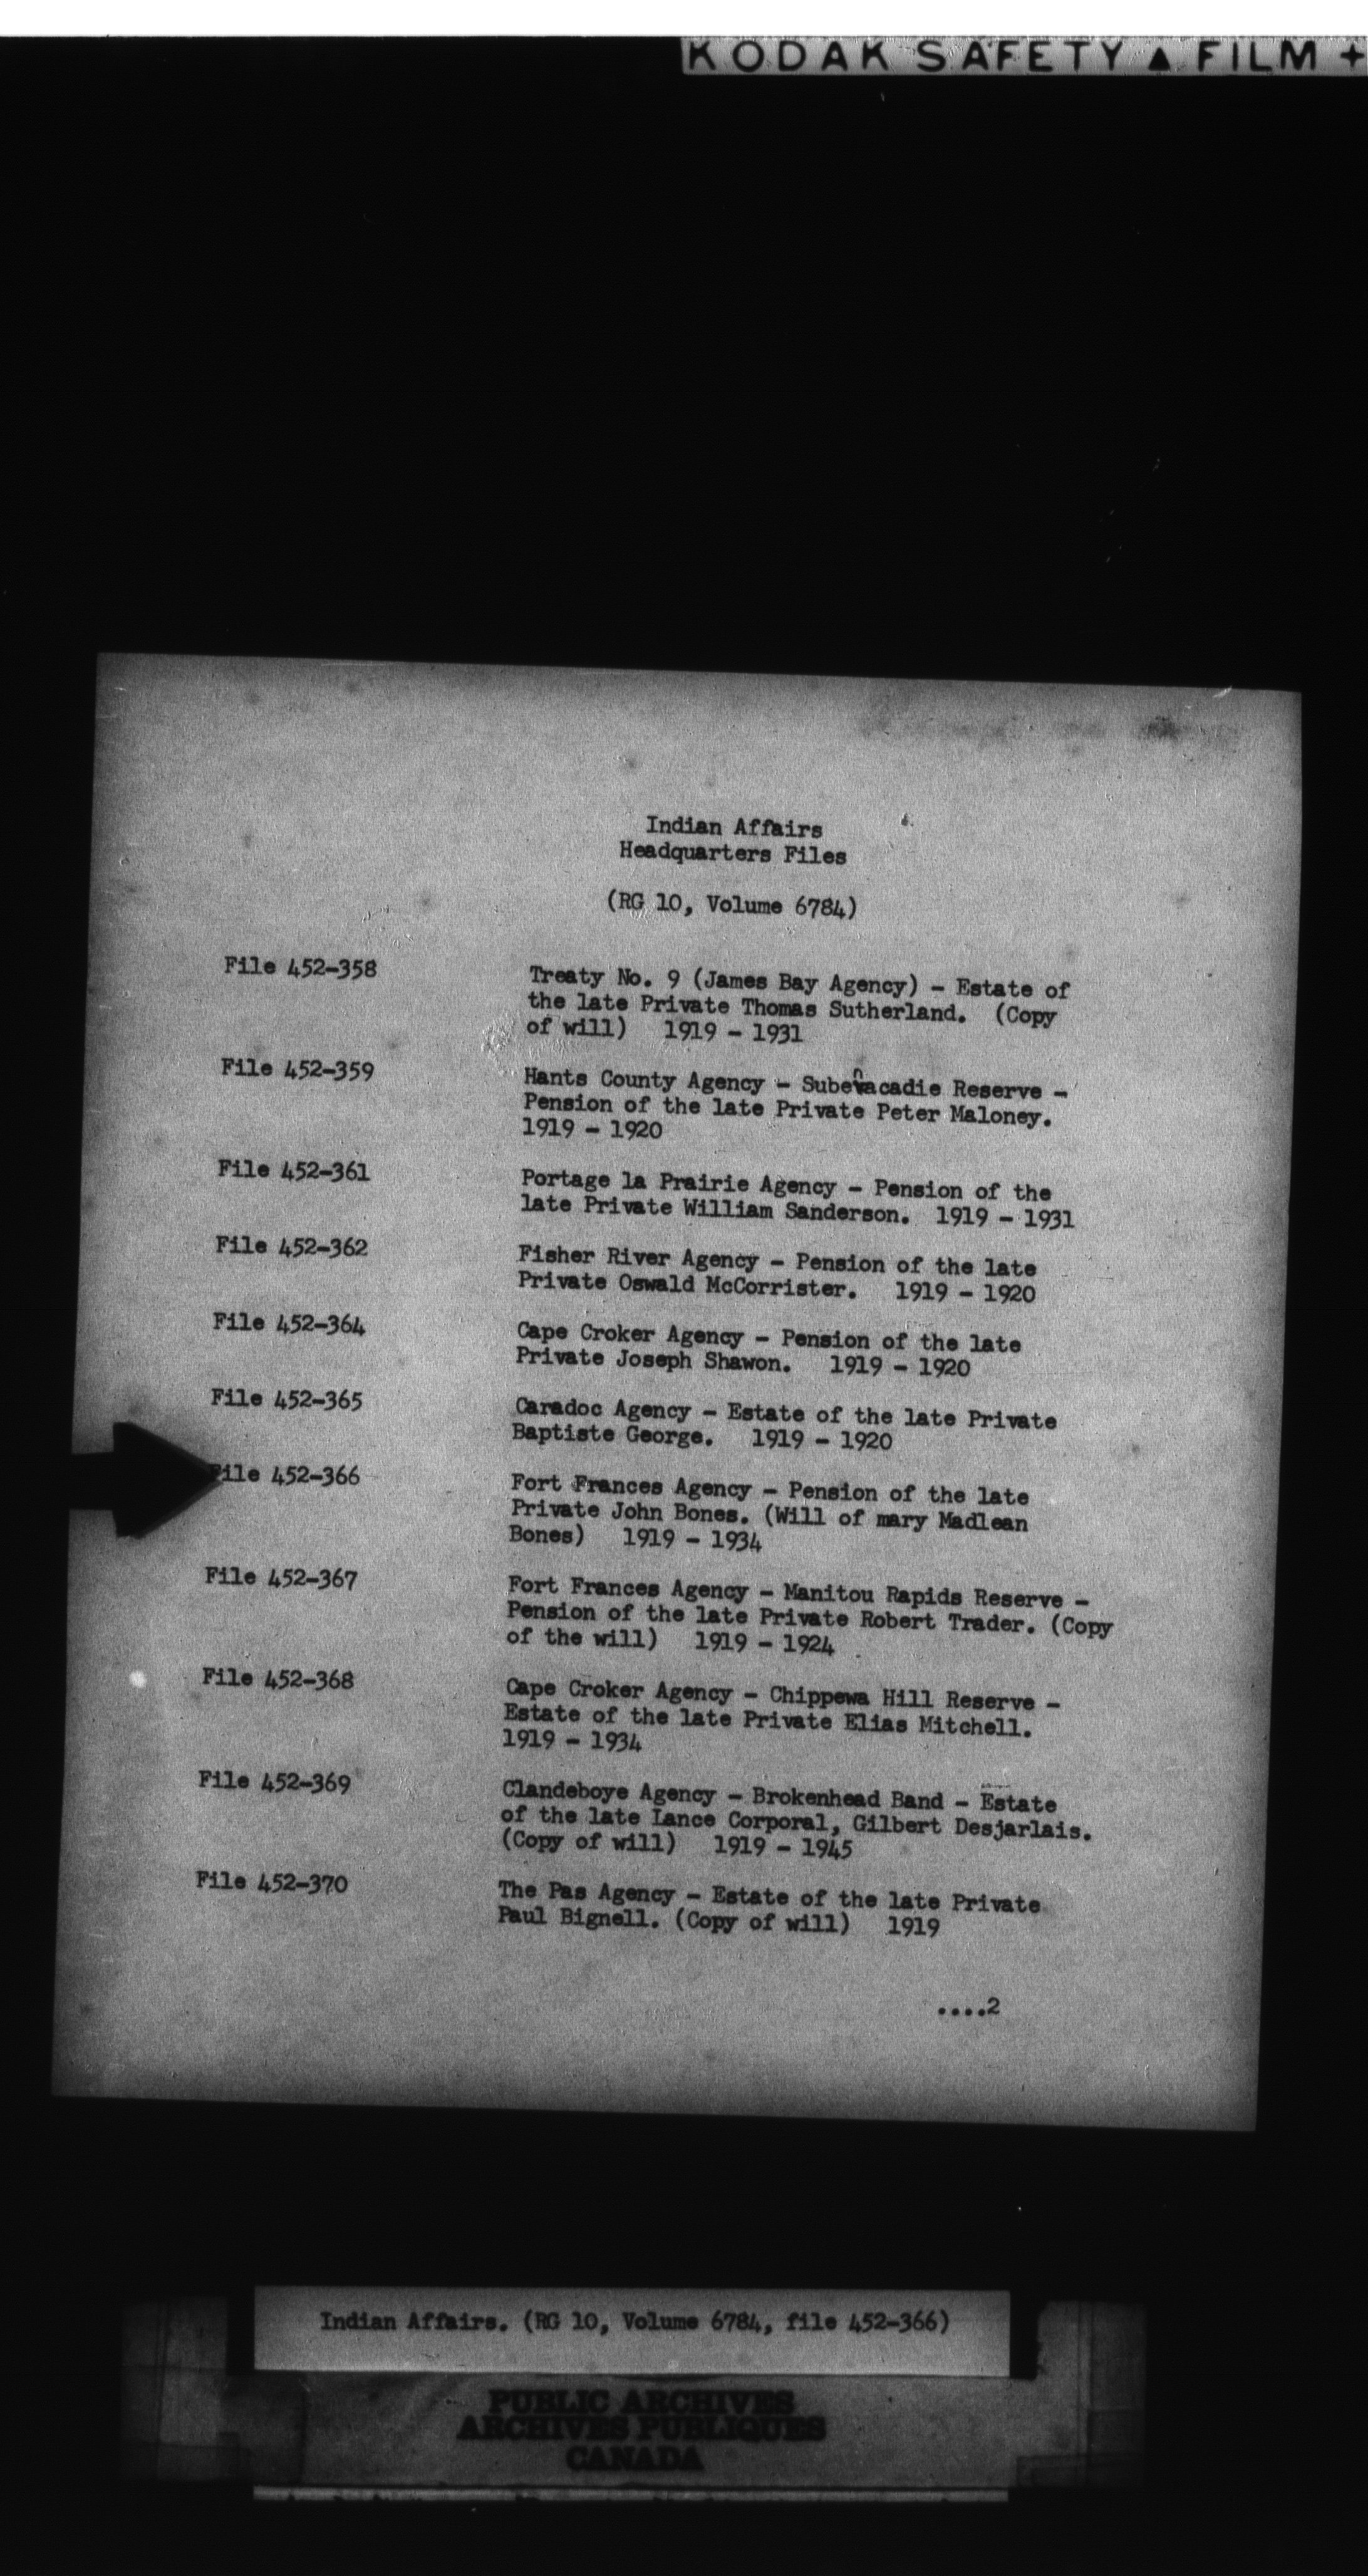 KODAK SAFETY ▲ FILM +
Indian Affairs
Headquarters Files
(RG 10, Volume 6784)
File 452-358
Treaty No. 9 (James Bay Agency) - Estate of
the late Private Thomas Sutherland. (Copy
of will) 1919 - 1931
File 452-359
Hants County Agency - Subenacadie Reserve -
Pension of the late Private Peter Maloney.
1919 - 1920
File 452-361
Portage la Prairie Agency - Pension of the
late Private William Sanderson. 1919 - 1931
File 452-362
Fisher River Agency - Pension of the late
Private Oswald McCorrister. 1919 - 1920
File 452-364
Cape Croker Agency - Pension of the late
Private Joseph Shawon. 1919 - 1920
File 452-365
Caradoc Agency - Estate of the late Private
Baptiste George. 1919 - 1920
File 452-366
Fort Frances Agency - Pension of the late
Private John Bones. (Will of mary Madlean
Bones) 1919 - 1934
File 452-367
Fort Frances Agency - Manitou Rapids Reserve -
Pension of the late Private Robert Trader. (Copy
of the will) 1919 - 1924
File 452-368
Cape Croker Agency - Chippewa Hill Reserve -
Estate of the late Private Elias Mitchell.
1919 - 1934
File 452-369
Clandeboye Agency - Brokenhead Band - Estate
of the late Lance Corporal, Gilbert Desjarlais.
(Copy of will) 1919 - 1945
File 452-370
The Pas Agency - Estate of the late Private
Paul Bignell. (Copy of will) 1919
....2
Indian Affairs. (RG 10, Volume 6784, file 452-366)
PUBLIC ARCHIVES
ARCHIVES PUBLIQUES
CANADA